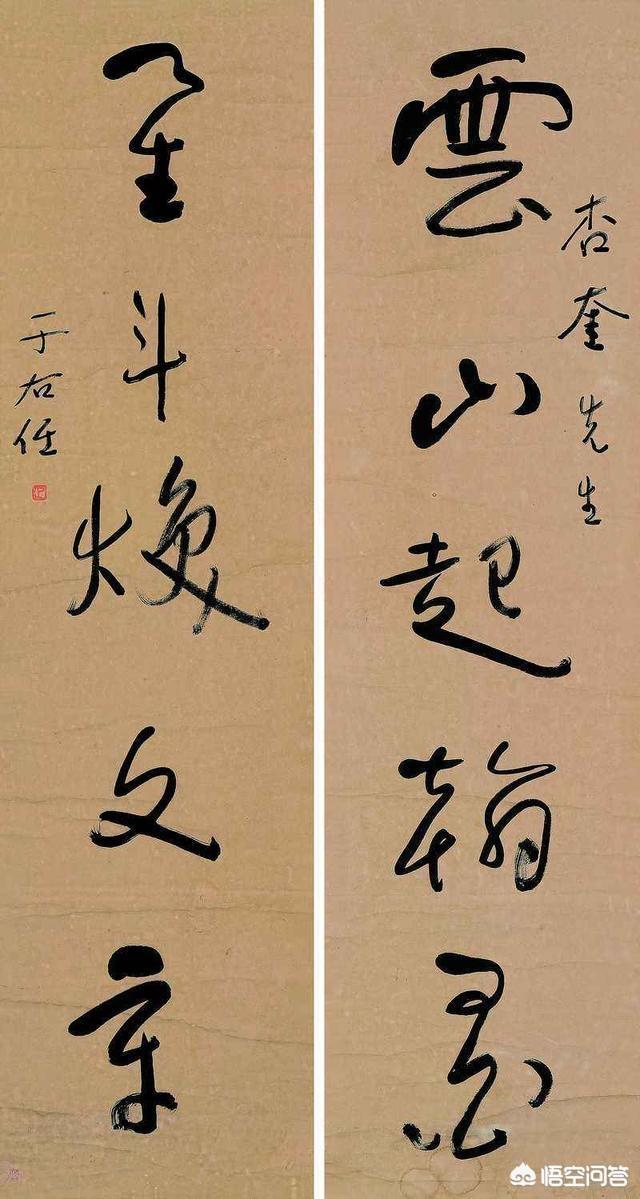 杏奎先生
雲山起翰墨
星斗煥文章
于右任
悟空问答